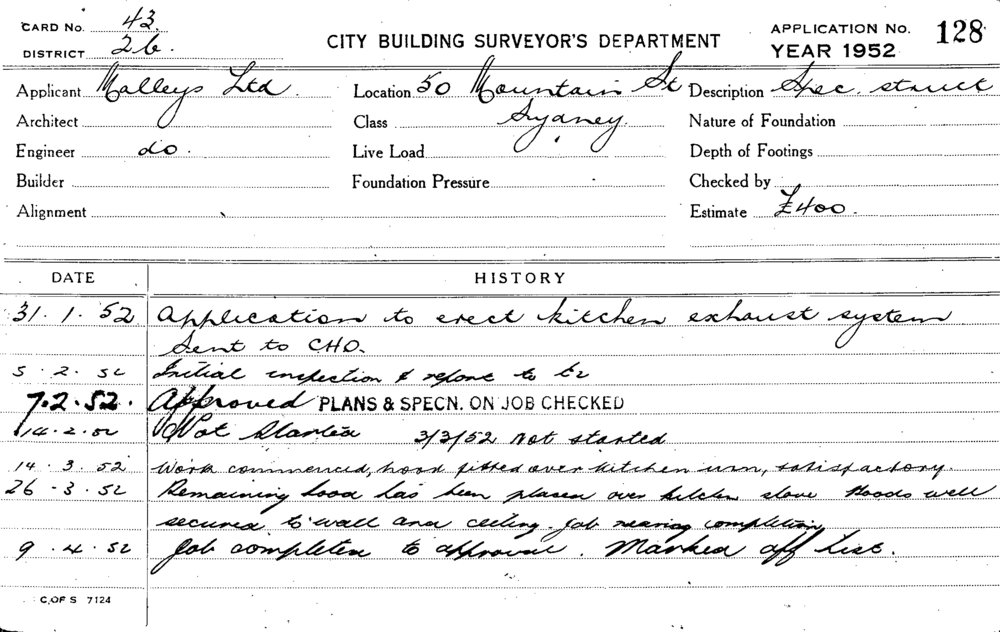 CARD No. 43. CITY BUILDING SURVEYOR'S DEPARTMENT APPLICATION No. 128
DISTRICT 26. YEAR 1952
Applicant Malleys Ltd. Location 50 Mountain St Description Spec. struct
Architect Class Sydney Nature of Foundation
Engineer do. Live Load Depth of Footings
Builder Foundation Pressure Checked by
Alignment Estimate £400.
DATE HISTORY
31.1.52 Application to erect kitchen exhaust system
Sent to CHO.
5.2.52 Initial inspection & report to
7.2.52. Approved PLANS & SPECN. ON JOB CHECKED
14.2.52 Not Started 3/3/52 Not started
14.3.52 Work commenced, hood fitted over kitchen urn, satisfactory.
26-3.52 Remaining hood has been placed over kitchen stove Hoods well
secured to wall and ceiling. Job nearing completion
9.4.52 Job completed to approval. Marked off list.
C. OF S 7124